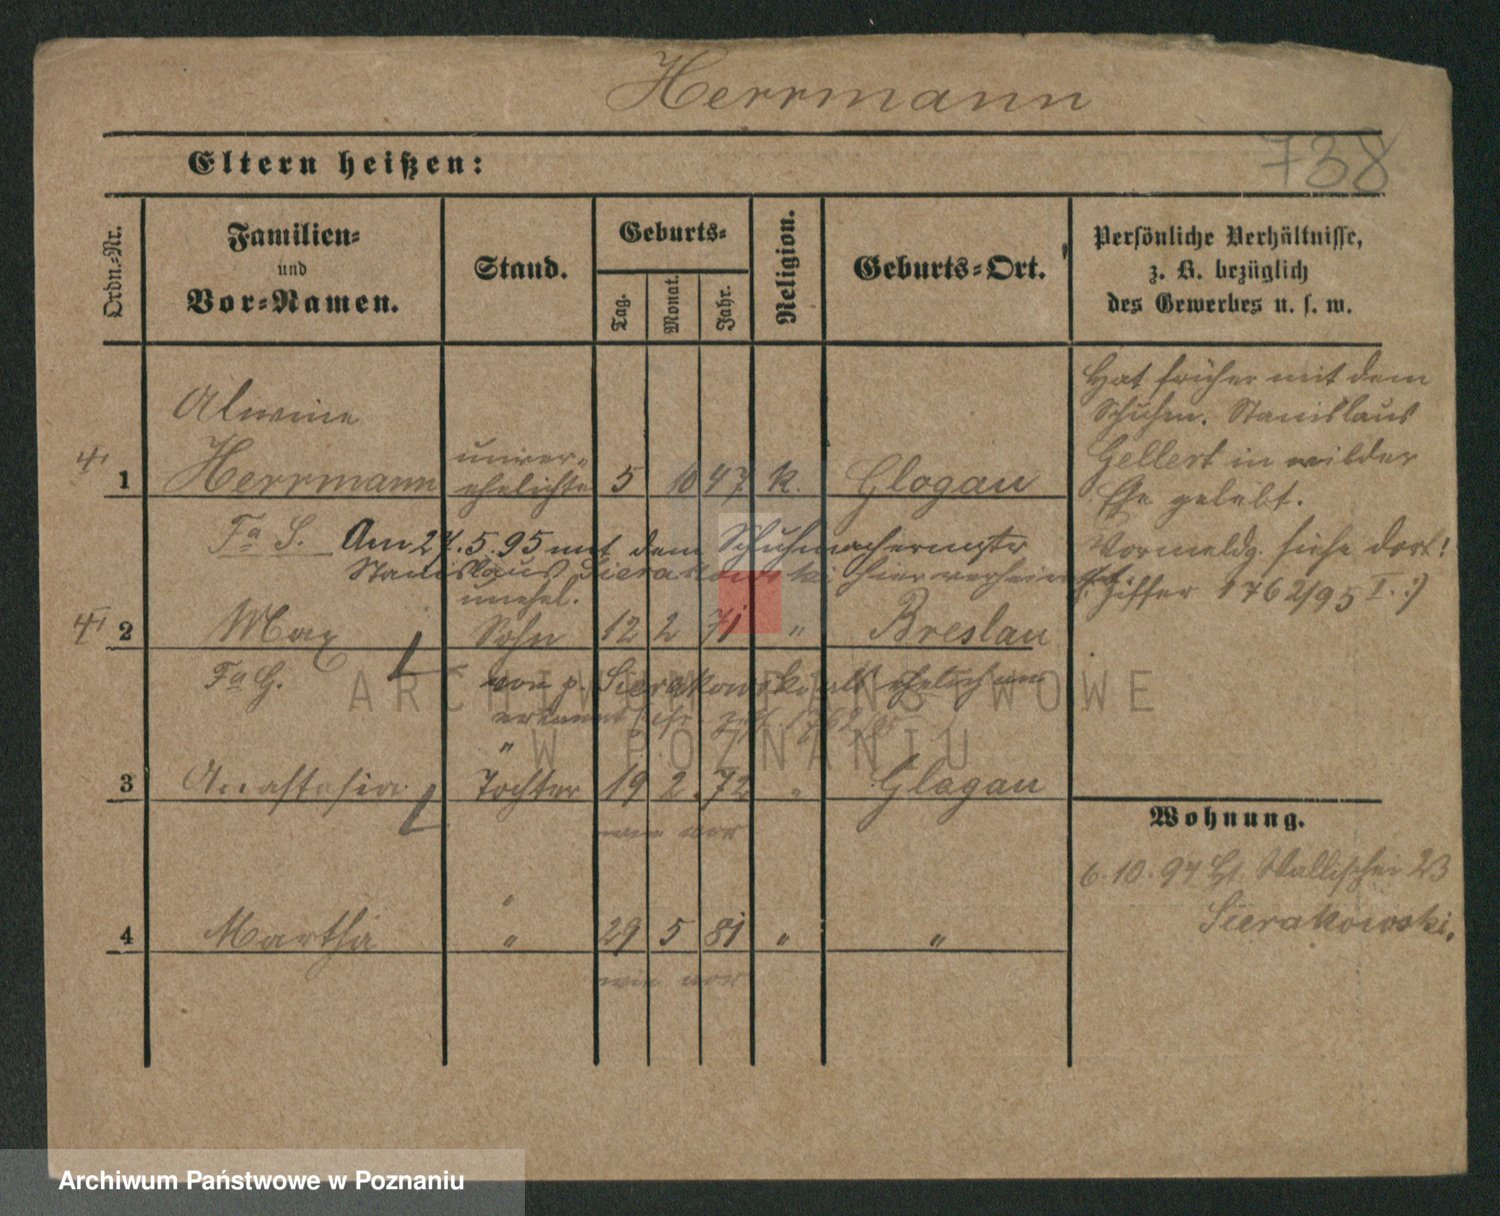 Herrmann
738
Eltern heißen:
Ordn.-Nr.
Familien-
und
Vor-Namen.
Stand.
Geburts-
Tag.
Monat.
Jahr.
Religion.
Geburts-Ort.
Persönliche Verhältnisse,
z. B. bezüglich
des Gewerbes u. s. w.
Hat früher mit dem
Schuhm. Stanislaus
Gellert in wilder
Ehe gelebt.
Vormeldg. siehe dort!
Ziffer 1762/95 I. :)
Alwine
unver-
1 Herrmann ehelichte 5 10 47 k. Glogau
Fa S. Am 27.5.95 mit dem Schuhmachermstr
Stanislaus Sierakowski hier verheiratet
unehel.
2 Max Sohn 12 2 71 " Breslau
Fa G. von p. Sierakowski als ehelich an
erkannt 1762/95
"
3 Anastasia Tochter 19 2 72 " Glogau
wie vor
"
4 Martha " 29 5 81 " "
wie vor
Wohnung.
6.10.97 Wallischei 23
Sierakowski.
ARCHIWUM PAŃSTWOWE
W POZNANIU
Archiwum Państwowe w Poznaniu